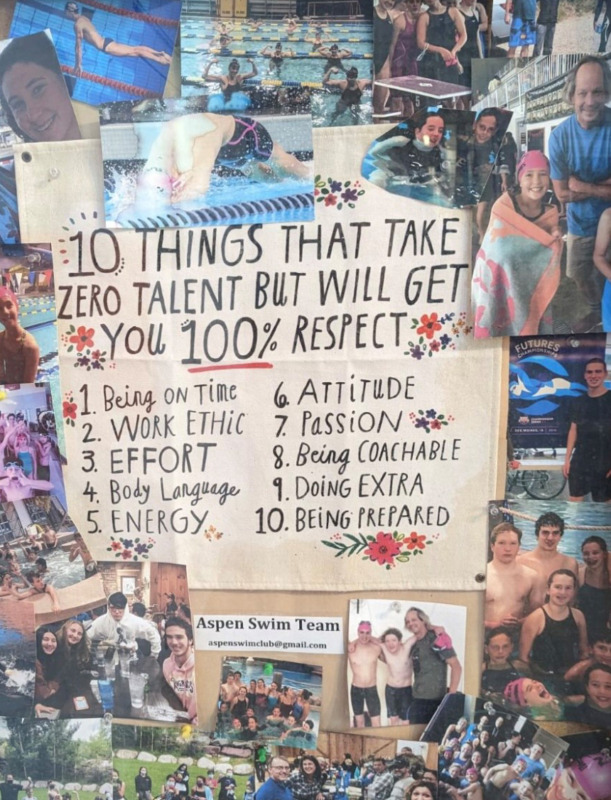 10 THINGS THAT TAKE
ZERO TALENT BUT WILL GET
YOU 100% RESPECT
1. Being on Time
2. WORK ETHIC
3. EFFORT
4. Body Language
5. ENERGY
6. ATTiTUDE
7. PASSION
8. Being COACHABLE
9. DOING EXTRA
10. BEING PREPARED
FUTURES
CHAMPIONSHIPS
Aspen Swim Team
aspenswimclub@gmail.com